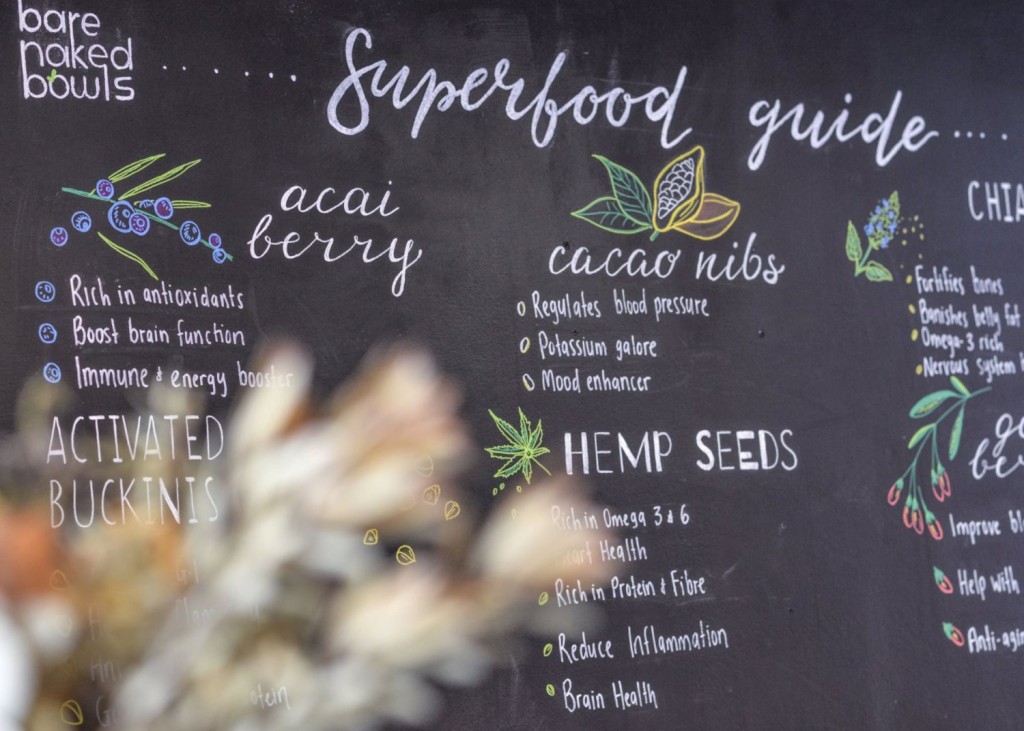 bare
naked
bowls
Superfood guide
acai
berry
Rich in antioxidants
Boost brain function
Immune & energy booster
ACTIVATED
BUCKINIS
cacao nibs
Regulates blood pressure
Potassium galore
Mood enhancer
HEMP SEEDS
Rich in Omega 3 & 6
Heart Health
Rich in Protein & Fibre
Reduce Inflammation
Brain Health
CHIA
Fortifies bones
Banishes belly fat
Omega-3 rich
Nervous system
Improve
Help with